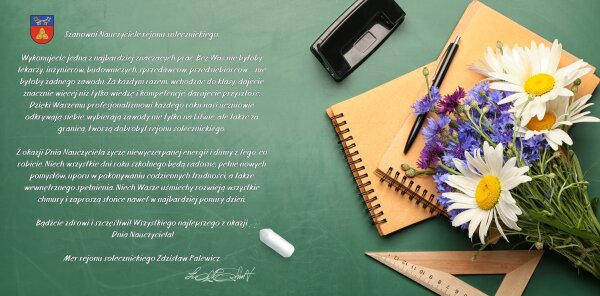 Szanowni Nauczyciele rejonu solecznickiego,
Wykonujecie jedną z najbardziej znaczących prac. Bez Was nie byłoby
lekarzy, inżynierów, budowniczych, sprzedawców, przedsiębiorców... nie
byłoby żadnego zawodu. Za każdym razem, wchodząc do klasy, dajecie
znacznie więcej niż tylko wiedzę i kompetencje, darujecie przyszłość.
Dzięki Waszemu profesjonalizmowi każdego roku nasi uczniowie
odkrywają siebie, wybierają zawody nie tylko na Litwie, ale także za
granicą, tworzą dobrobyt rejonu solecznickiego.
Z okazji Dnia Nauczyciela życzę niewyczerpanej energii i dumy z tego, co
robicie. Niech wszystkie dni roku szkolnego będą radosne, pełne nowych
pomysłów, uporu w pokonywaniu codziennych trudności, a także
wewnętrznego spełnienia. Niech Wasze uśmiechy rozwieją wszystkie
chmury i zaproszą słońce nawet w najbardziej ponury dzień.
Bądźcie zdrowi i szczęśliwi! Wszystkiego najlepszego z okazji
Dnia Nauczyciela!
Mer rejonu solecznickiego Zdzisław Palewicz